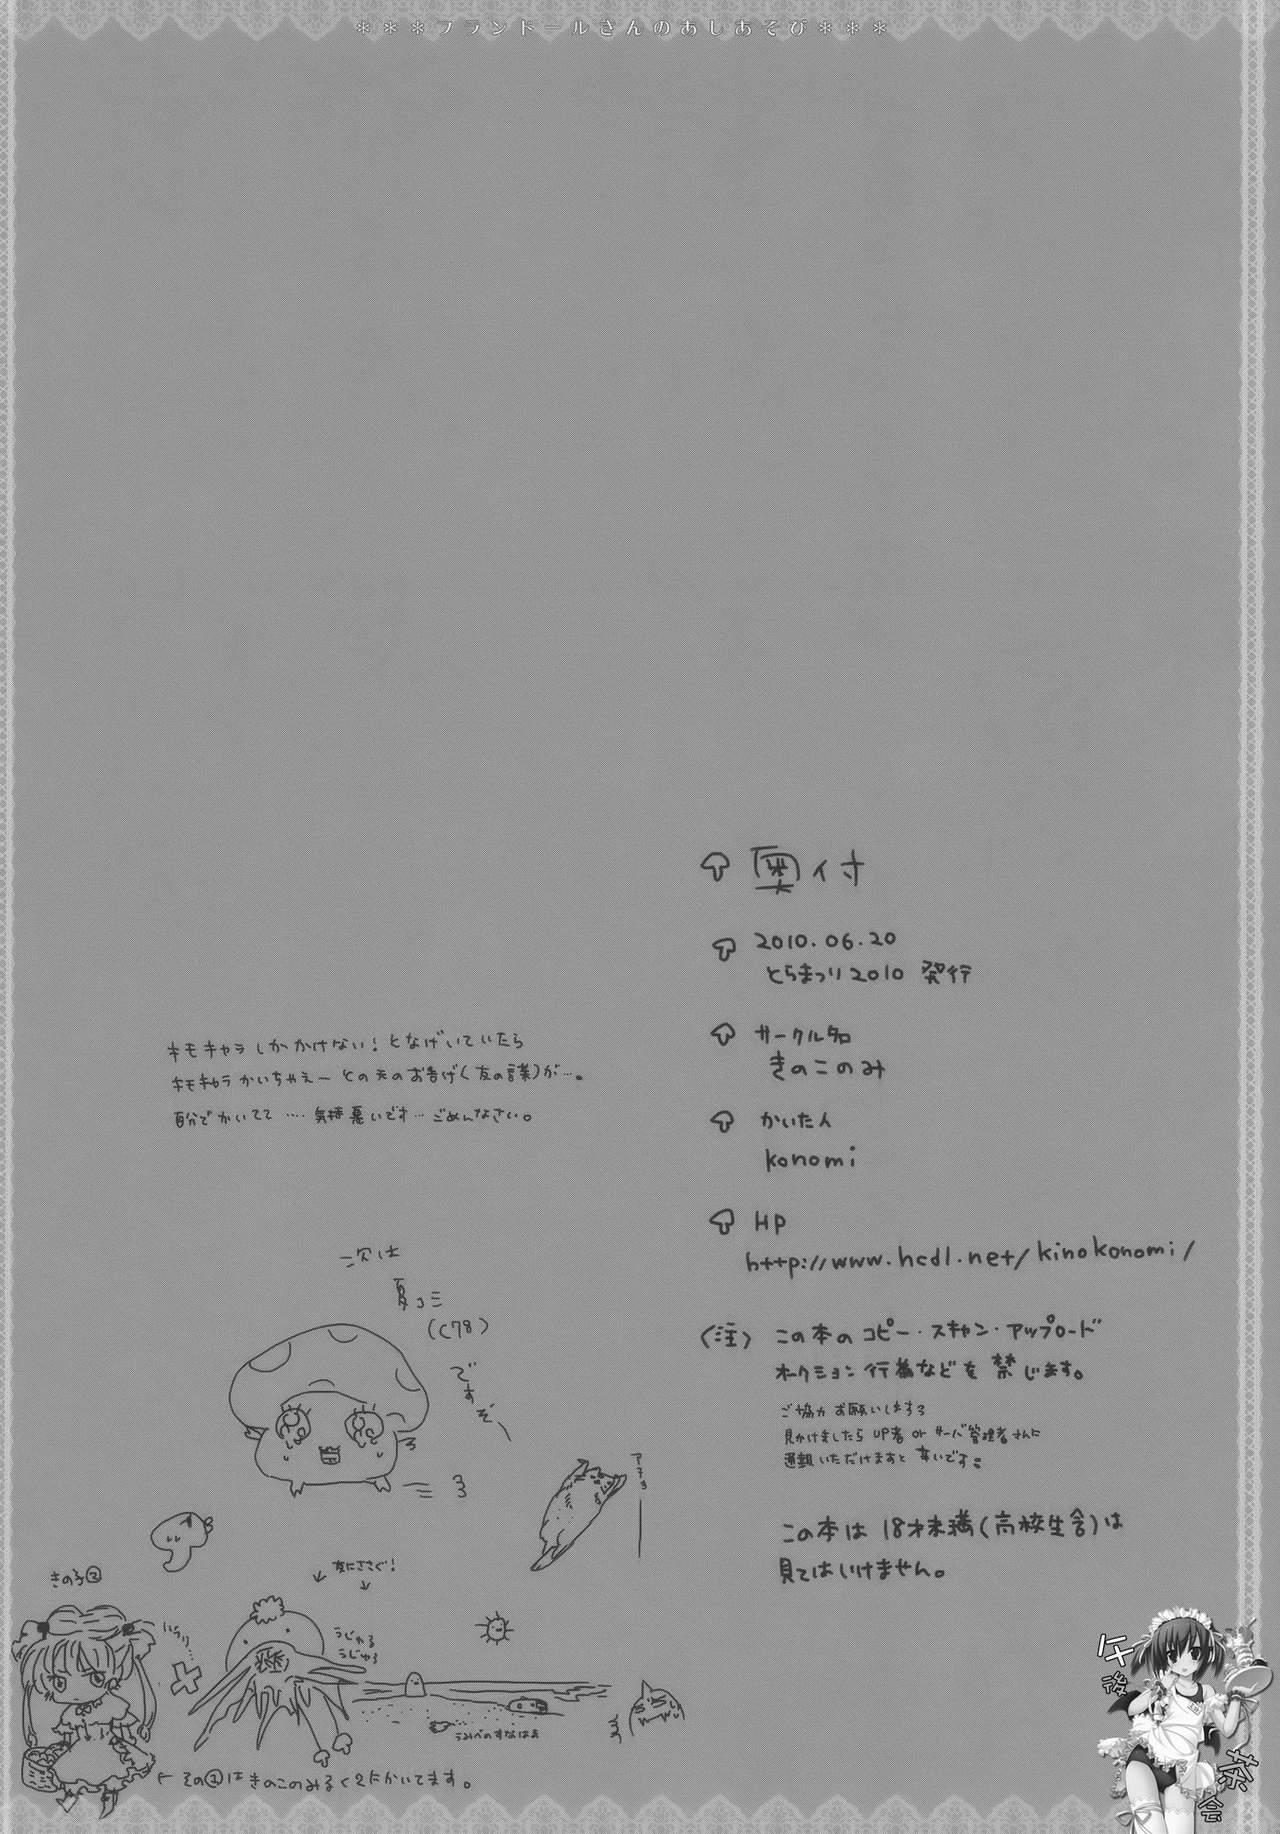 ＊＊＊フランドールさんのあしあそび＊＊＊
奥付
2010.06.20
とらまつり2010 発行
サークル名
きのこのみ
かいた人
konomi
HP
http://www.hcdl.net/kinokonomi/
(注) この本の コピー・スキャン・アップロード
オークション 行為などを 禁じます。
ご協力 お願いしますろ
見かけましたら UP者 or サーバ管理者さんに
通報いただけますと 幸いです。
この本は 18才未満(高校生含)は
見てはいけません。
キモキャラ しか かけない! となげいていたら
キモキャラ かいちゃえー との天のお告げ(友の言葉)が…。
自分で かいてて …. 気持 悪いです… ごめんなさい。
次は
夏コミ
(C78)
ですぞー
きの子②
友にささぐ!
うじゅる
うじゅる
うみべのすなはま
← その①はきのこのみるく2にかいてます。
午後
茶会